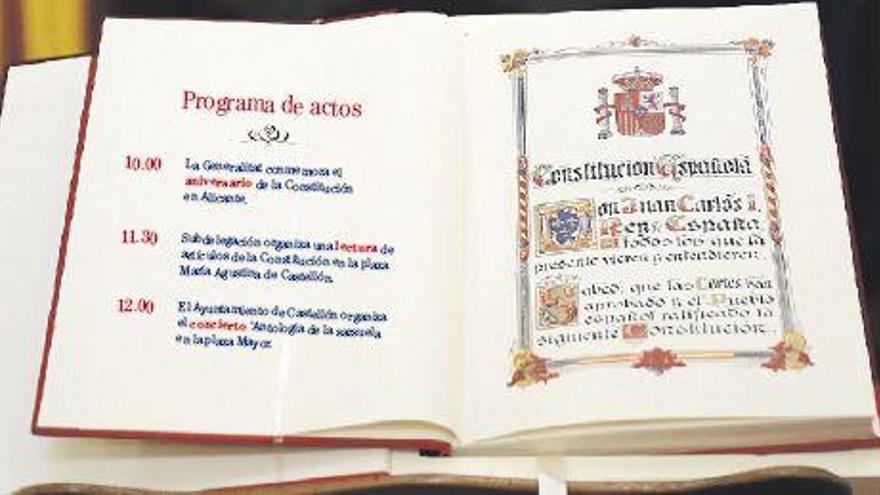 Programa de actos
10.00
La Generalitat conmemora el
aniversario de la Constitución
en Alicante.
11.30
Subdelegación organiza una lectura de
artículos de la Constitución en la plaza
María Agustina de Castellón.
12.00
El Ayuntamiento de Castellón organiza
el concierto 'Antología de la zarzuela
en la plaza Mayor.
Constitucion Española
Don Juan Carlos I,
Rey de España
A todos los que la
presente vieren y entendieren:
Sabed: que las Cortes han
aprobado y el Pueblo
español ratificado la
siguiente Constitución..